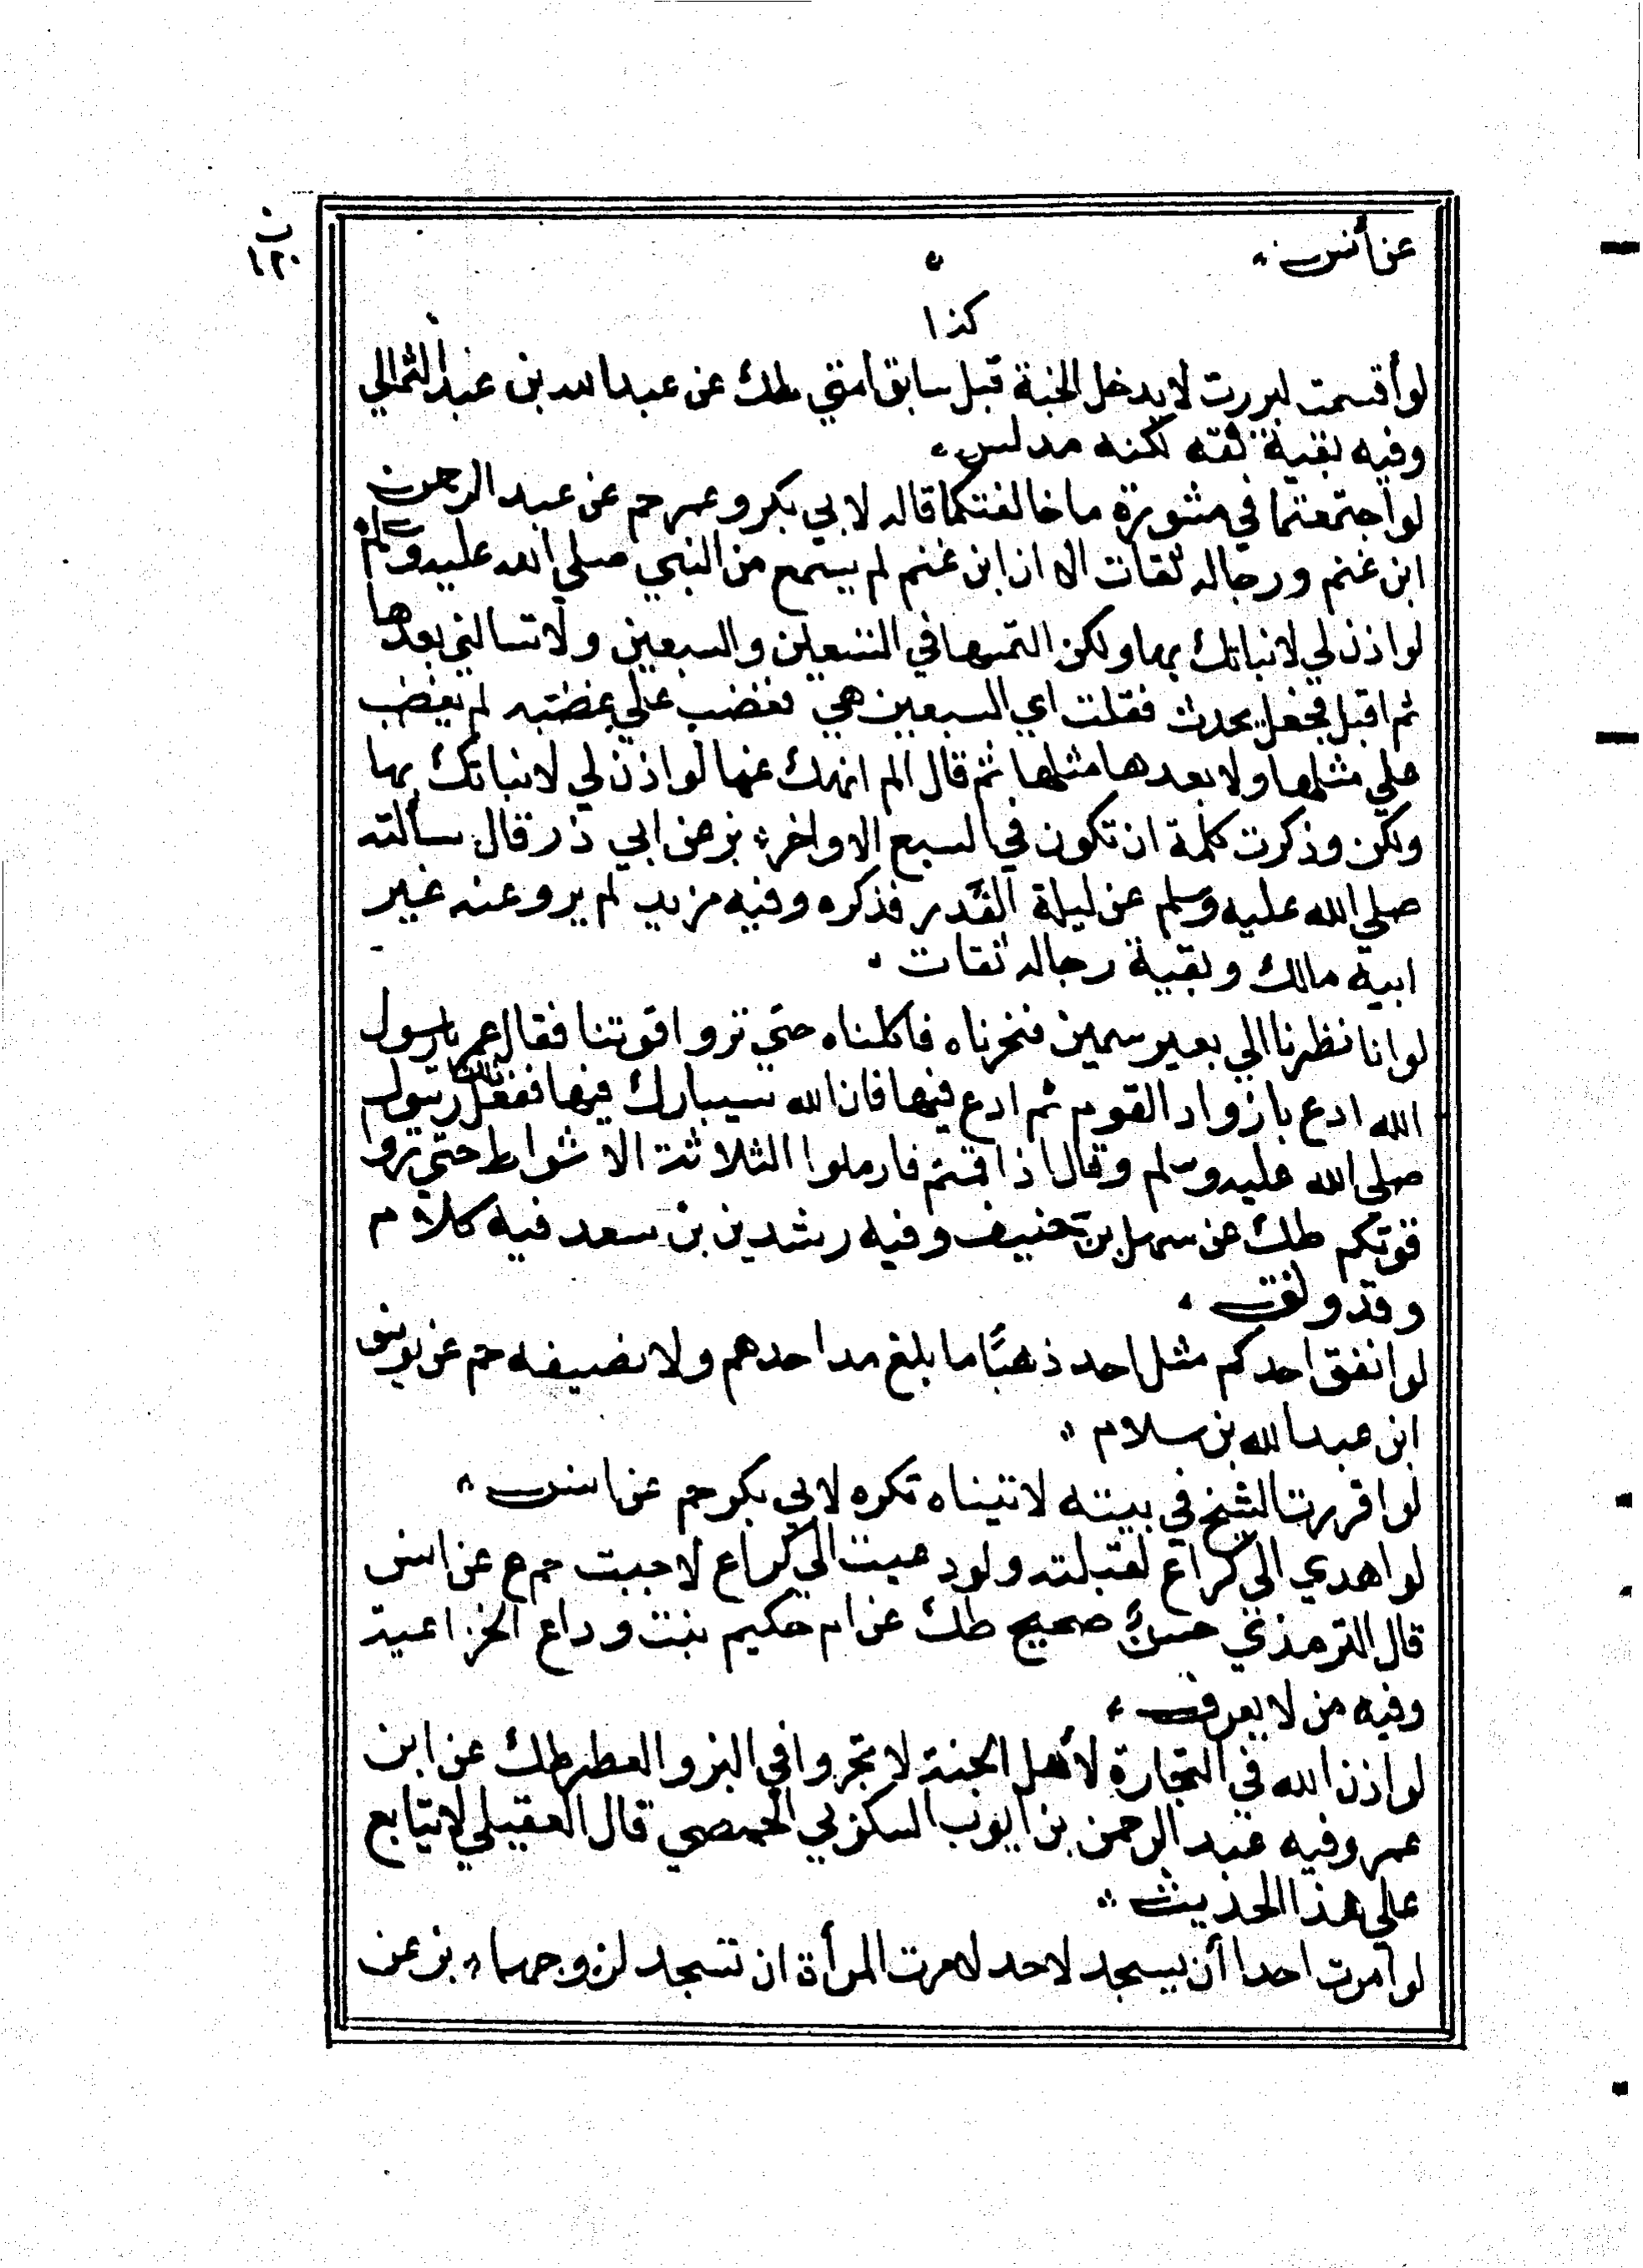 ب
١٢٠
عن أنس
كذا
لو أقسمت لبررت لا يدخل الجنة قبل سابق امتي طك عن عبد الله بن عبد الثمالي
وفيه بقية ثقة لكنه مدلس
لو اجتمعتما في مشورة ما خالفتكما قاله لابي بكر وعمر حم عن عبد الرحمن
ابن غنم ورجاله ثقات الا ان ابن غنم لم يسمع من النبي صلي الله عليه وسلم
لو اذن لي لانباتك بها ولكن التمسها في التسعين والسبعين ولا تسالني بعدها
ثم اقبل فجعل يحدث فقلت اي السبعين هي فغضب علي غضبه لم يغضب
علي مثلها ولا بعدها مثلها ثم قال الم انهك عنها لو اذن لي لانباتك بها
ولكن وذكرت كلمة ان تكون في السبع الاواخر بز عن ابي ذر قال سألته
صلي الله عليه وسلم عن ليلة القدر فذكره وفيه مزيد لم يرو عنه غير
ابيه مالك وبقية رجاله ثقات
لو انا نظرنا الي بعير سمين فنحرناه فاكلناه حتي تروا قوتنا فقال عمر يا رسول
الله ادع بازواد القوم ثم ادع فيها فان الله سيبارك فيها ففعل رسول
صلي الله عليه وسلم وقال اذا قمتم فارملوا الثلاثة الاشواط حتي تروا
قوتكم طك عن سهل بن حنيف وفيه رشدين بن سعد فيه كلام
وقد وثق
لو انفق احدكم مثل احد ذهبًا ما بلغ مد احدهم ولا نصيفه حم عن يوسف
ابن عبد الله بن سلام
لو اقررت الشيخ في بيته لاتيناه تكره لابي بكر حم عن انس
لو اهدي الي كراع لقبلته ولو دعيت الي كراع لاجبت حم ع عن انس
قال الترمذي حسنٌ صحيح طك عن ام حكيم بنت وداع الخزاعية
وفيه من لا يعرف
لو اذن الله في التجارة لأهل الجنة لاتجروا في البز والعطر طك عن ابن
عمر وفيه عبد الرحمن بن ايوب السكوني الحمصي قال العقيلي لا يتابع
علي هذا الحديث
لو أمرت احدا أن يسجد لاحد لامرت المرأة ان تسجد لزوجها بز عن